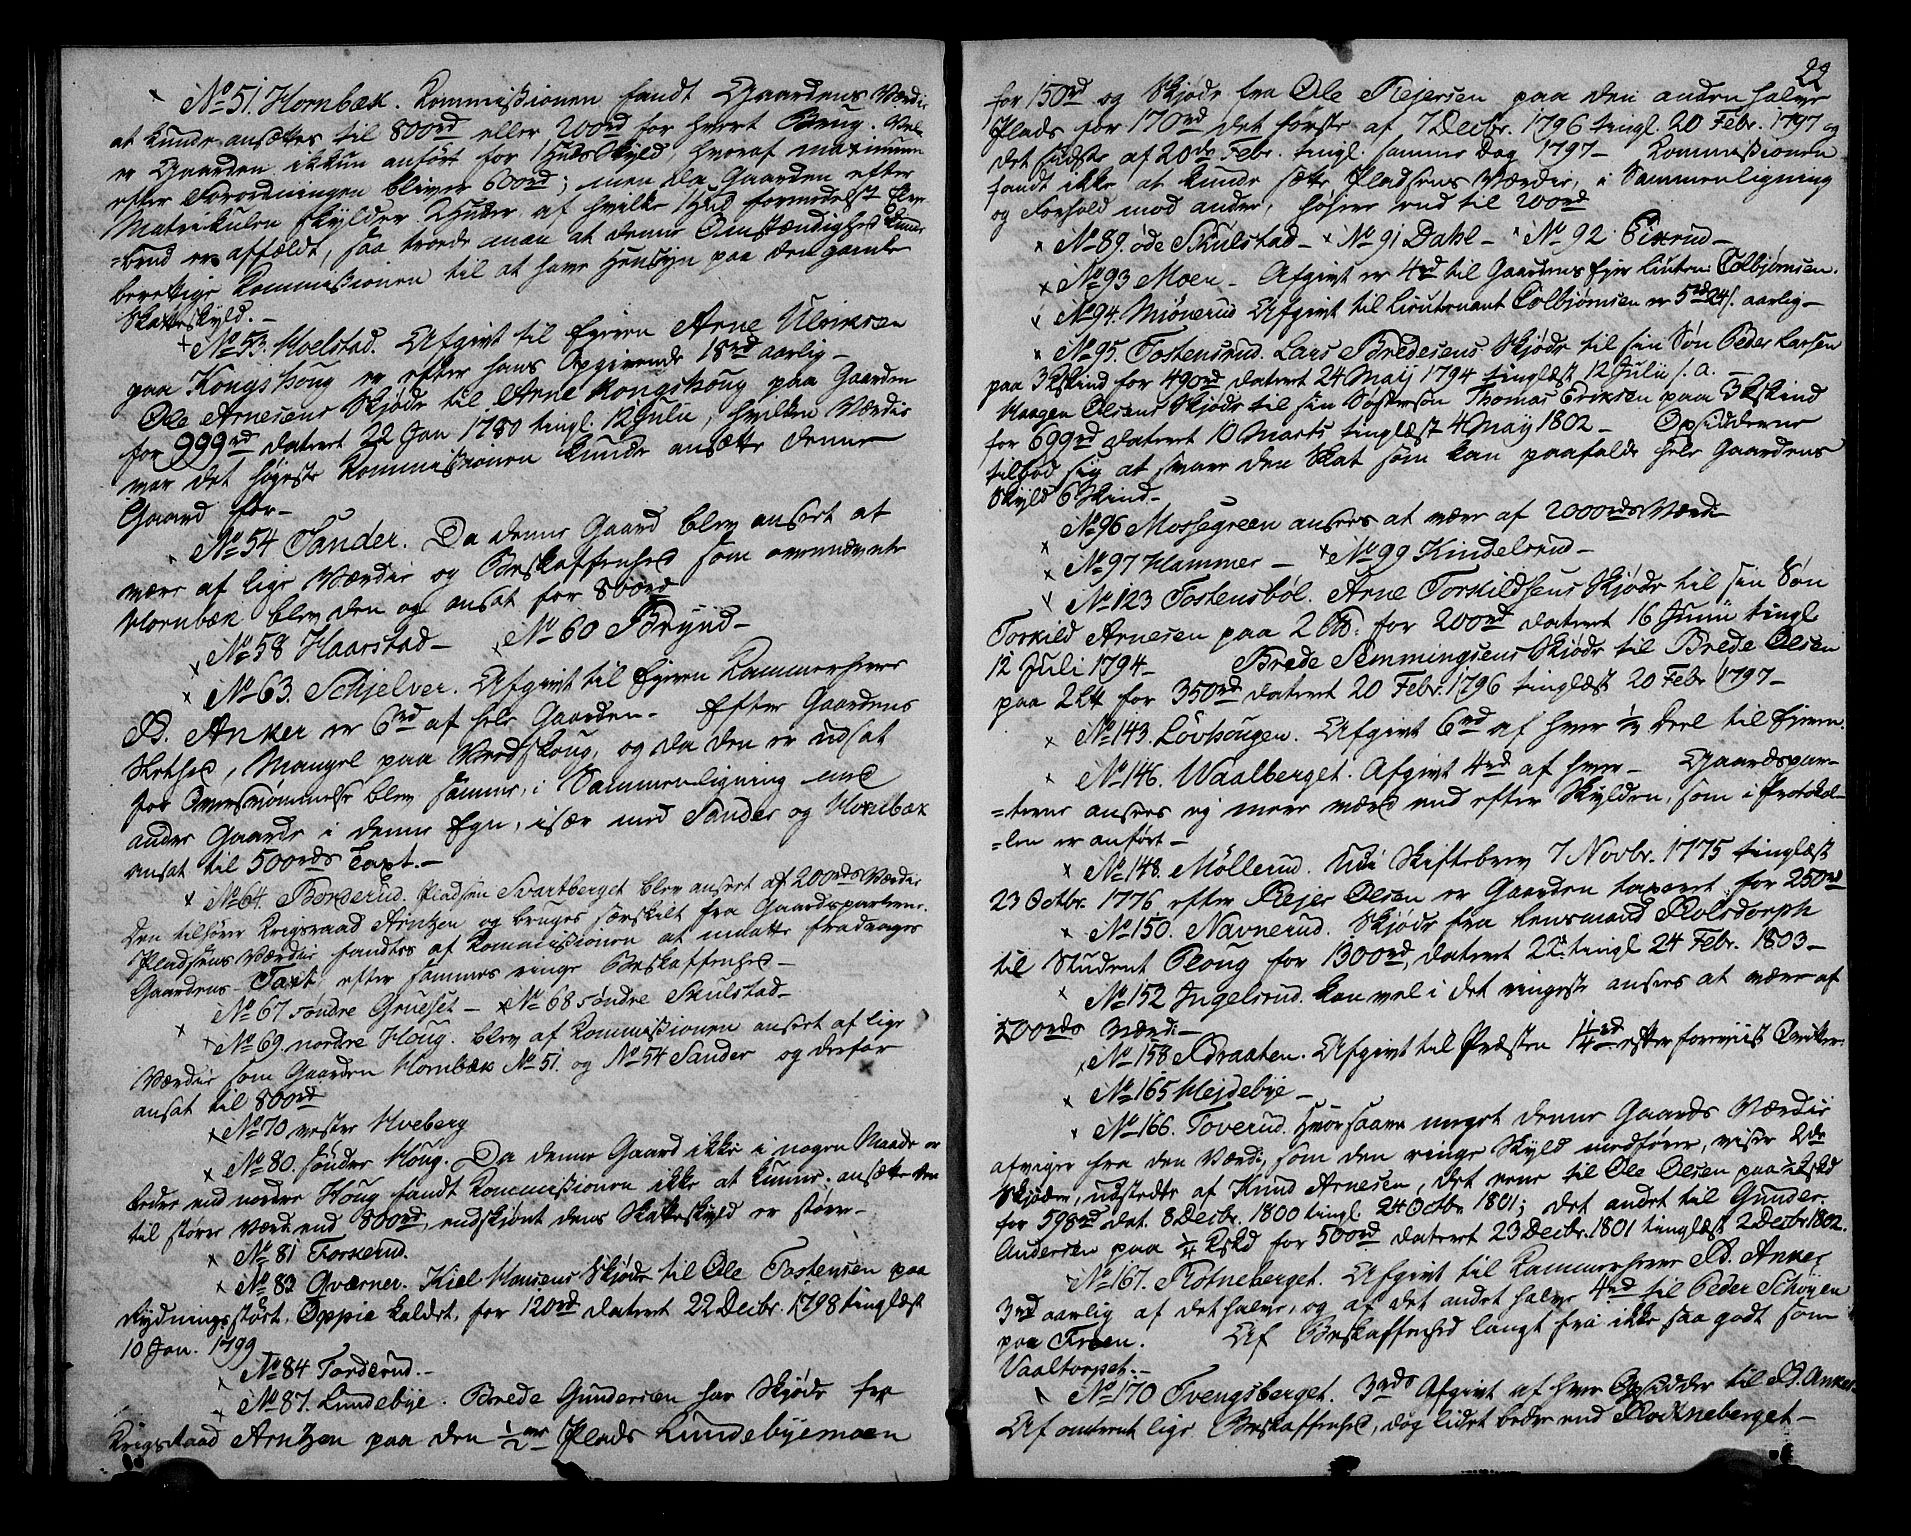 No 51. Hornbæk. Kommissionen fandt Gaardens Værdie
at kunde ansættes til 800rd eller 200rd for hvert Brug. Vel
er Gaarden ikkun anført for 1 Huds Skyld, hvoraf maximum
efter Forordningen bliver 600rd; men da Gaarden efter
Matrikulen skylder 2 Huder, af hvilke 1 Hud formodelst Elve-
=brud er affældt, saa troede man at denne Omstændighed kunde
berettige Kommissionen til at have Hensyn paa den gamle
Skatteskyld.-
No 53. Hvelstad. Afgivt til Ejeren Arne Ulriksen
paa Kongshoug er efter hans Opgivende 18rd aarlig -
Ole Arnesens Skjøde til Arne Kongshoug paa Gaarden
for 999rd dateret 22 Jan 1780 tingl. 12 Julii, hvilken Værdie
var det høyeste Kommissionen kunde ansætte denne
Gaard for-
No 54 Sander. Da denne Gaard blev anseet at
være af lige Værdie og Beskaffenhed som ovennævnte
Hornbæk blev den og ansat for 800rd
No 58 Haarstad - No 60 Brynd -
No 63. Schjelver. Afgivt til Ejeren Kammerherre
B. Anker er 6rd af hele Gaarden - Efter Gaardens
Slethed, Mangel paa Vedskoug, og da den er udsat
for Oversvømmelse blev samme, i Sammenligning med
andre Gaarde i denne Egn, især med Sander og Hornbæk
ansat til 500rds Taxt.-
No 64. Borderud. Pladsen Svartberget blev anseet af 200rds Værdie
Den tilhører Krigsraad Arntzen og bruges særskilt fra Gaardparterne.
Pladsens Værdie fandtes af Kommissionen at maatte fradrages
Gaardens Taxt, efter sammes ringe Beskaffenhed -
No 67 søndre Grueset - No 68 søndre Skulstad -
No 69 nordre Houg. blev af Kommissionen anseet af lige
Værdie som Gaarden Hornbæk No 51. og No 54 Sander og derfor
ansat til 800rd
No 70 vestre Hveberg
No 80. søndre Houg. Da denne Gaard ikke i nogen Maade er
bedre end nordre Houg fandt Kommissionen ikke at kunne ansætte den
til større Værdi end 800rd, endskjønt dens Skatteskyld er større -
No 81 Torkerud.
No 83 Qværner. Kiel Hansens Skjøde til Ole Tostensen paa
Rydningsstørt. Oppie kaldet, for 120rd dateret 22 Decbr. 1798 tinglæst
10 Jan. 1799
No 84 Torderud.-
No 87. Lundebye. Brede Gundersen har Skjøde fra
Krigsraad Arntzen paa den 1/2ve Plads Lundebyemoen
22
for 150rd og Skjøde fra Ole Rejersen paa den anden halve
Plads for 170rd det første af 7 Decbr. 1796 tingl. 20 Febr. 1797 og
det sidste af 20de Febr. tingl. samme Dag 1797 - Kommissionen
fandt ikke at kunde sætte Pladsens Værdie, i Sammenligning
og Forhold mod andre, høyere end til 200rd
No 89. øde Skulstad - No 91 Dahl - No 92. Eikrud -
No 93 Moen - Afgivt er 4rd til Gaardens Ejer Liuten: Colbjørnsen.
No 94. Miønerud Afgivt til Lieutenant Colbjørnsen er 5rd 24s. aarlig -
No 95. Tostensrud. Lars Bredesens Skjøde til sin Søn Peder Larsen
paa 3 Skind for 490rd dateret 24 Maij 1794 tinglæst 12 Julii s. a. -
Haagen Olsens Skjøde til sin Søstersøn Thomas Eriksen paa 3 Skind
for 699rd dateret 10 Marts tinglæst 4 May 1802 - Opsidderne
tilbød sig at svare den Skat som kan paafalde hele Gaardens
Skyld 6 Skind -
No 96 Mossegreen ansees at være af 2000rds Værdi
No 97 Hammer - No 99 Kindelsrud -
No 123 Tostensbøl. Arne Torkildsens Skjøde til sin Søn
Torkild Arnesen paa 2 for 200rd dateret 16 Junii tingl
12 Juli 1794 - Brede Semmingsens Skjøde til Brede Olsen
paa 2 for 350rd dateret 20 Febr. 1796 tinglæst 20 Febr 1797 -
No 143. Lövhougen. Afgivt 6rd af hver 1/2 Deel til Ejeren.
No 146. Waalberget. Afgivt 4rd af hver - Gaardspar-
=terne ansees ej mere værd end efter Skylden, som i Protokol-
=len er anført -
No 148. Möllerud. Udi Skiftebrev 7 Novbr. 1775 tinglæst
23 Octbr. 1776 efter Rejer Olsen er Gaarden taxeret for 250rd
No 150. Navnerud. Skjøde fra Lensmand Rolsdorph
til Student Ploug for 1300rd, dateret 22. tingl 24 Febr. 1803 -
No 152 Ingelsrud. kan vel i det ringeste ansees at være af
500rds Værdi -
No 158 Braaten. Afgivt til Præsten 1 1/4rd efter foreviist
No 165 Hejdebye -
No 166. Toverud. Hvorsaare meget denne Gaards Værdie
afviger fra den Værdi, som den ringe Skyld medfører, viser 2de
Skjøder, udstedte af Knud Arnesen, det eene til Ole Olsen paa
for 598rd dat. 8 Decbr. 1800 tingl. 24 Octbr 1801; det andet til Gunder
Andersen paa 1/4 for 500rd dateret 23 Decbr. 1801 tinglæst 2 Decbr 1802.
No 167. Rotneberget. Afgivt til Kammerherre B. Anker
3rd aarlig af det halve, og af det andet halve 4rd til Peder Schøyen
paa Froen. Af Beskaffenhed langt fra ikke saa godt som
Vaaltorpet.-
No 170 Tvengsberget. 3rds Afgivt af hver Opsidder til B. Anker.
Af omtrent lige Beskaffenhed, dog lidet bedre end Rotneberget -